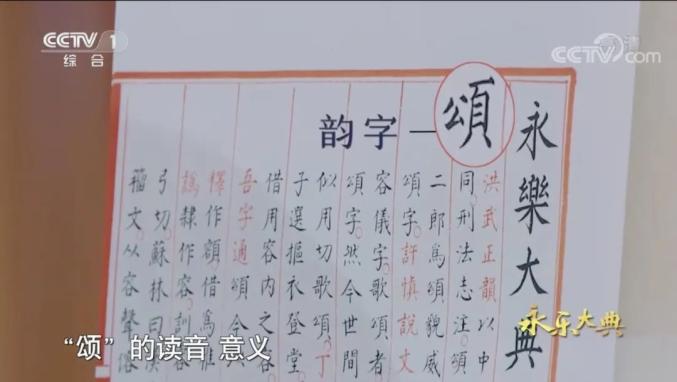 CCTV 1
综合
CCTV.com
永樂大典
頌
韵字
洪武正韻以中
同刑法志注頌
二郎為頌貌威
頌字許慎說文
容儀字歌頌者
頌字然今世間
似用切歌頌丁
子選摳衣登堂
借用容內之容
吾字通頌今
釋作額借為惟
隸作容訓
弓切蘇林曰漢
籀文从容聲
永乐大典
“颂”的读音 意义